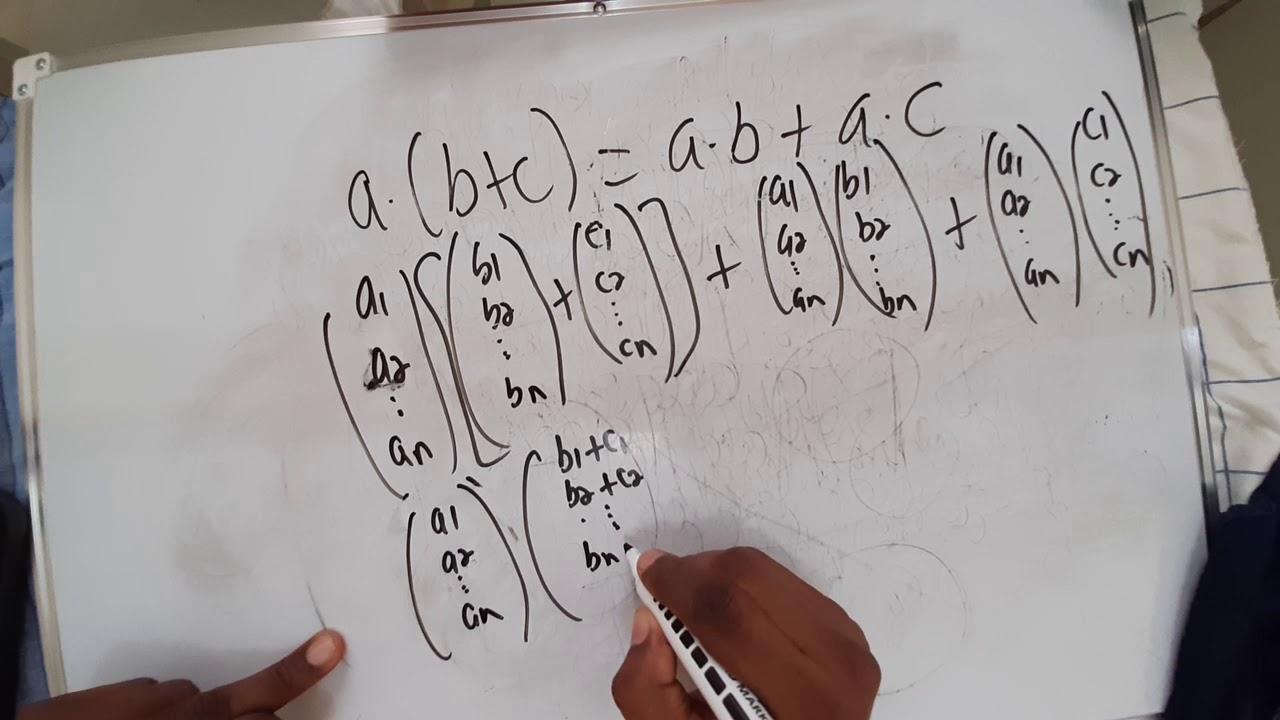 a.(b+c) = a.b + a.c
(a1 a2 ⋮ an) [(b1 b2 ⋮ bn) + (c1 c2 ⋮ cn)] + (a1 a2 ⋮ an) (b1 b2 ⋮ bn) + (a1 a2 ⋮ an) (c1 c2 ⋮ cn)
(a1 a2 ⋮ an) . (b1+c1 b2+c2 ⋮ bn
MARK